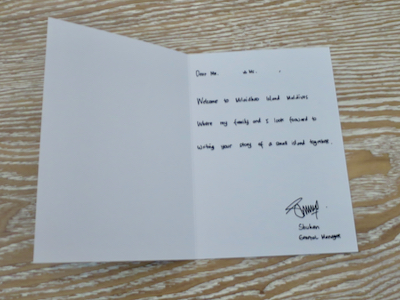 Dear Mr.
Welcome to Milaidhoo Island Maldives
Where my family and I look forward to
writing your story of a small island together.
General Manager